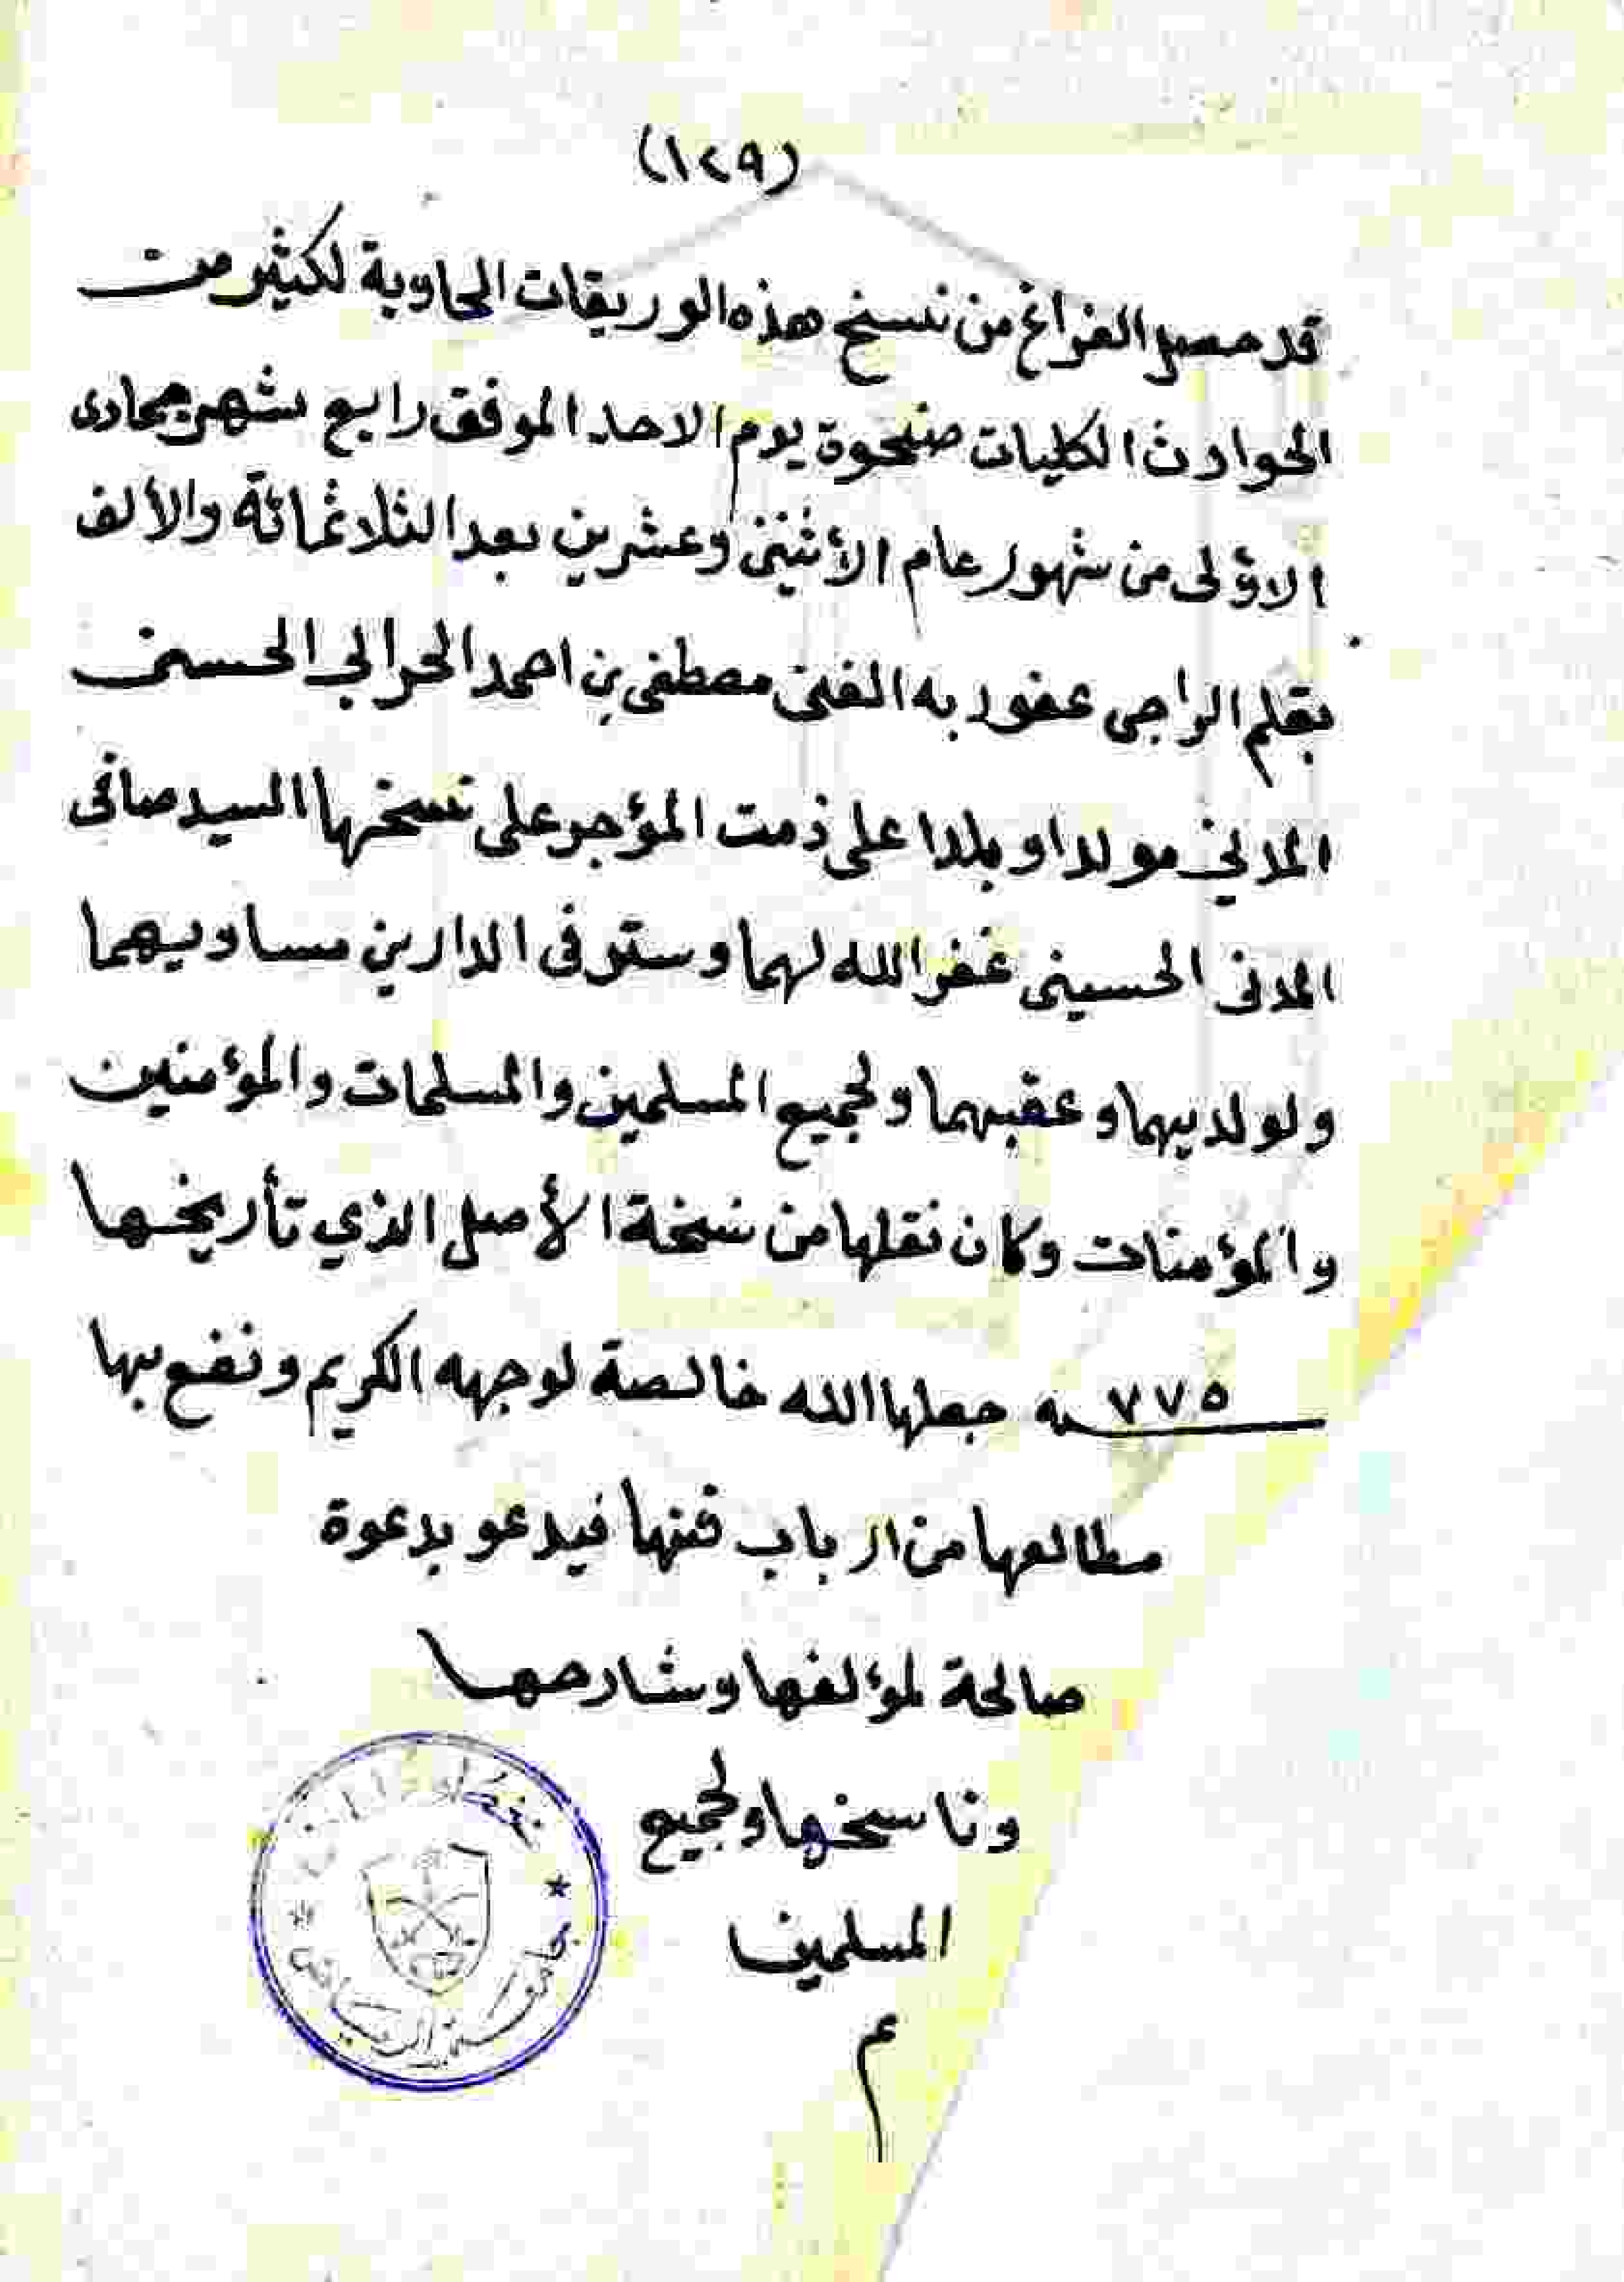 (١٢٩)
قد حصل الفراغ من نسخ هذه الوريقات الحاوية لكثير من
الحوادث الكليات ضحوة يوم الاحد الموفق رابع شهر جمادى
الاؤلى من شهور عام الأثنين وعشرين بعد الثلاثمائة والألف
بقلم الراجى عفور به الغنى مصطفى بن احمد الحرالي الحسنى
المدني مولدا وبلدا على ذمت المؤجر على نسخها السيد صافى
المدنى الحسينى غفر الله لهما وستر فى الدارين مساويهما
ولولديهما وعقبهما ولجميع المسلمين والمسلمات والمؤمنين
والمؤمنات وكان نقلها من نسخة الأصل الذي تأريخها
٧٧٥ سنه جعلها الله خالصة لوجهه الكريم ونفع بها
مطالعها من ارباب فنها فيدعو بدعوة
صالحة لمؤلفها وشارحها
وناسخها ولجميع
المسلمين
م